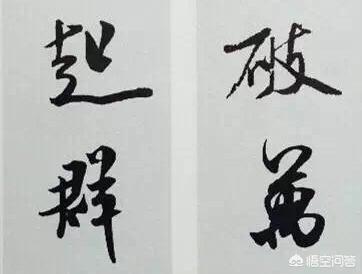 破萬
超群
悟空问答